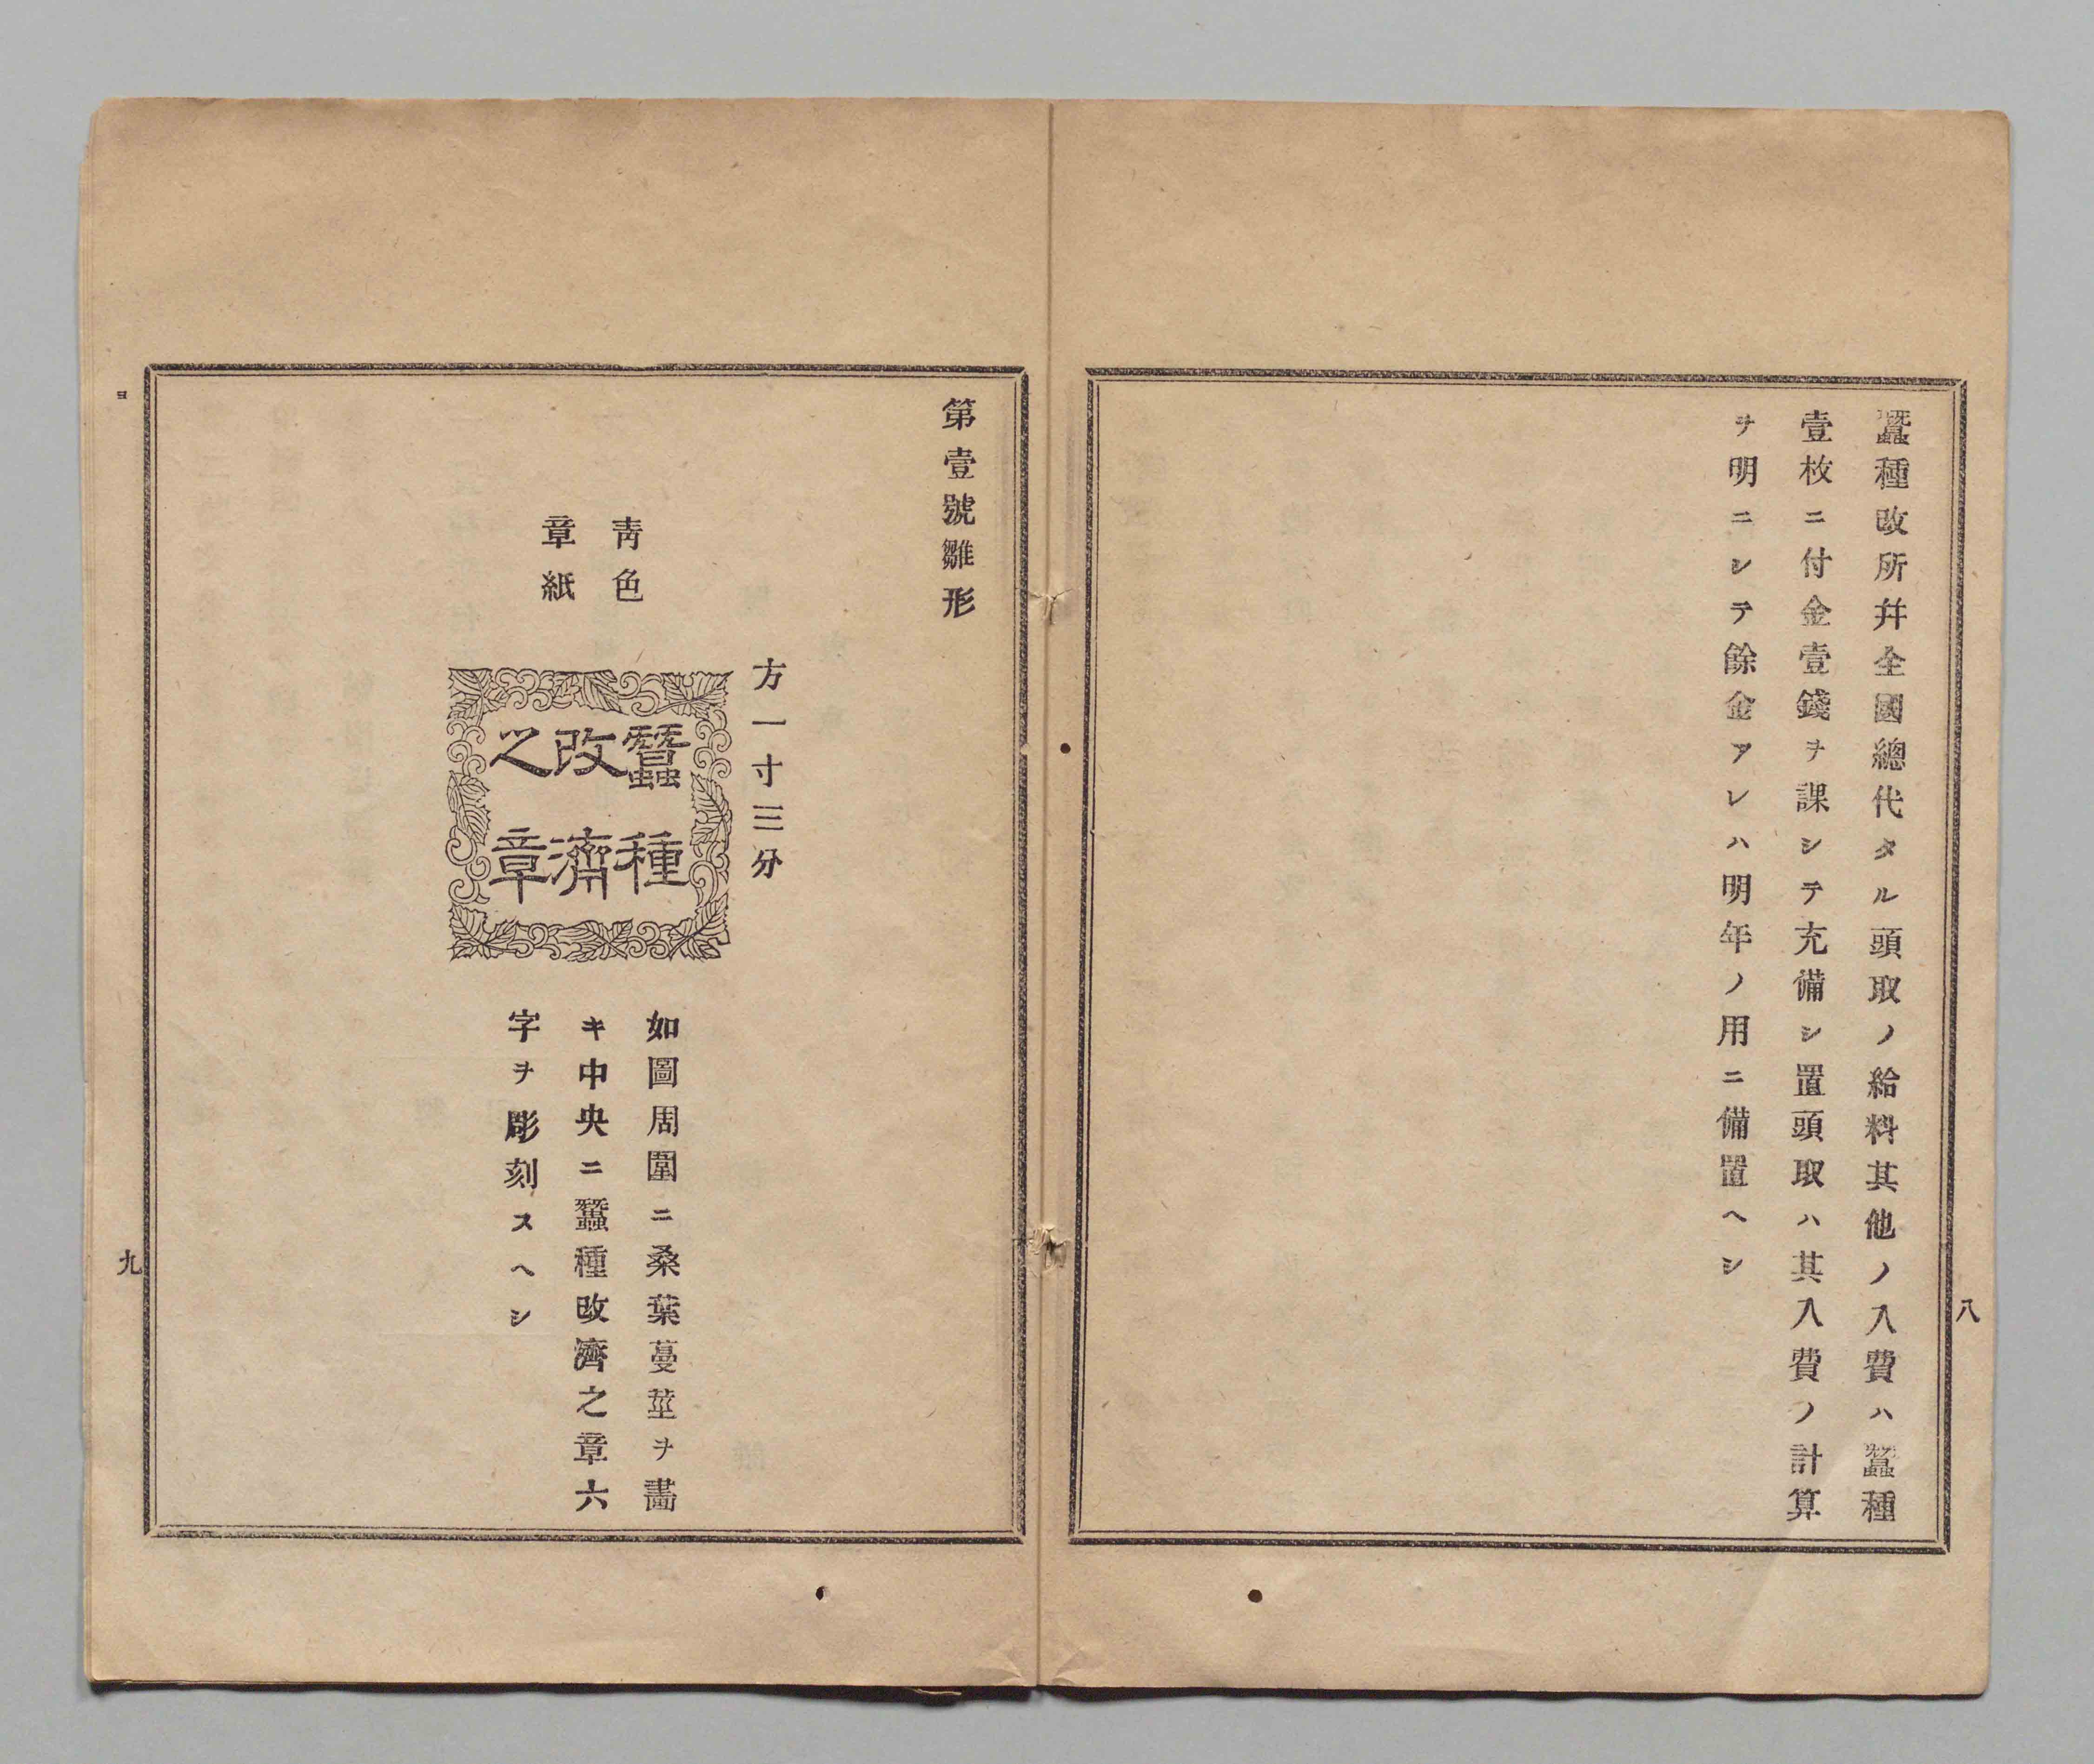 蠶種改所幷全國總代タル頭取ノ給料其他ノ入費ハ蠶種
壹枚ニ付金壹錢ヲ課シテ充備シ置頭取ハ其入費ノ計算
ヲ明ニシテ餘金アレハ明年ノ用ニ備置ヘシ
八
第壹號雛形
方一寸三分
靑色
章紙
蠶種
改濟
之章
如圖周圍ニ桑葉蔓莖ヲ畵
キ中央ニ蠶種改濟之章六
字ヲ彫刻スヘシ
ヨ
九